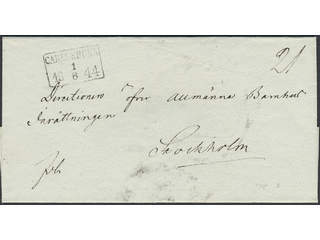 CARLSKRONA
1
18 6 44
21
Directionen öfver Allmänna Barnhus
Inrättningen
Stockholm